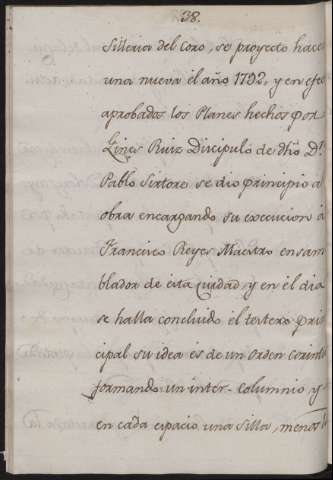 38.
Silleria del Coro, se proyecto hace
una nueva el año 1792, y en efe
aprobados los Planes hechos por
Gines Ruiz Discipulo de dho Dn.
Pablo Sixtore se dio principio a
obra encargando su execucion á
Francisco Reyes Maestro ensam
blador de esta ciudad, y en el dia
se halla concluido el testero prin
cipal su idea és de un orden corint
formando un inter-columnio, y
en cada espacio una silla, menos